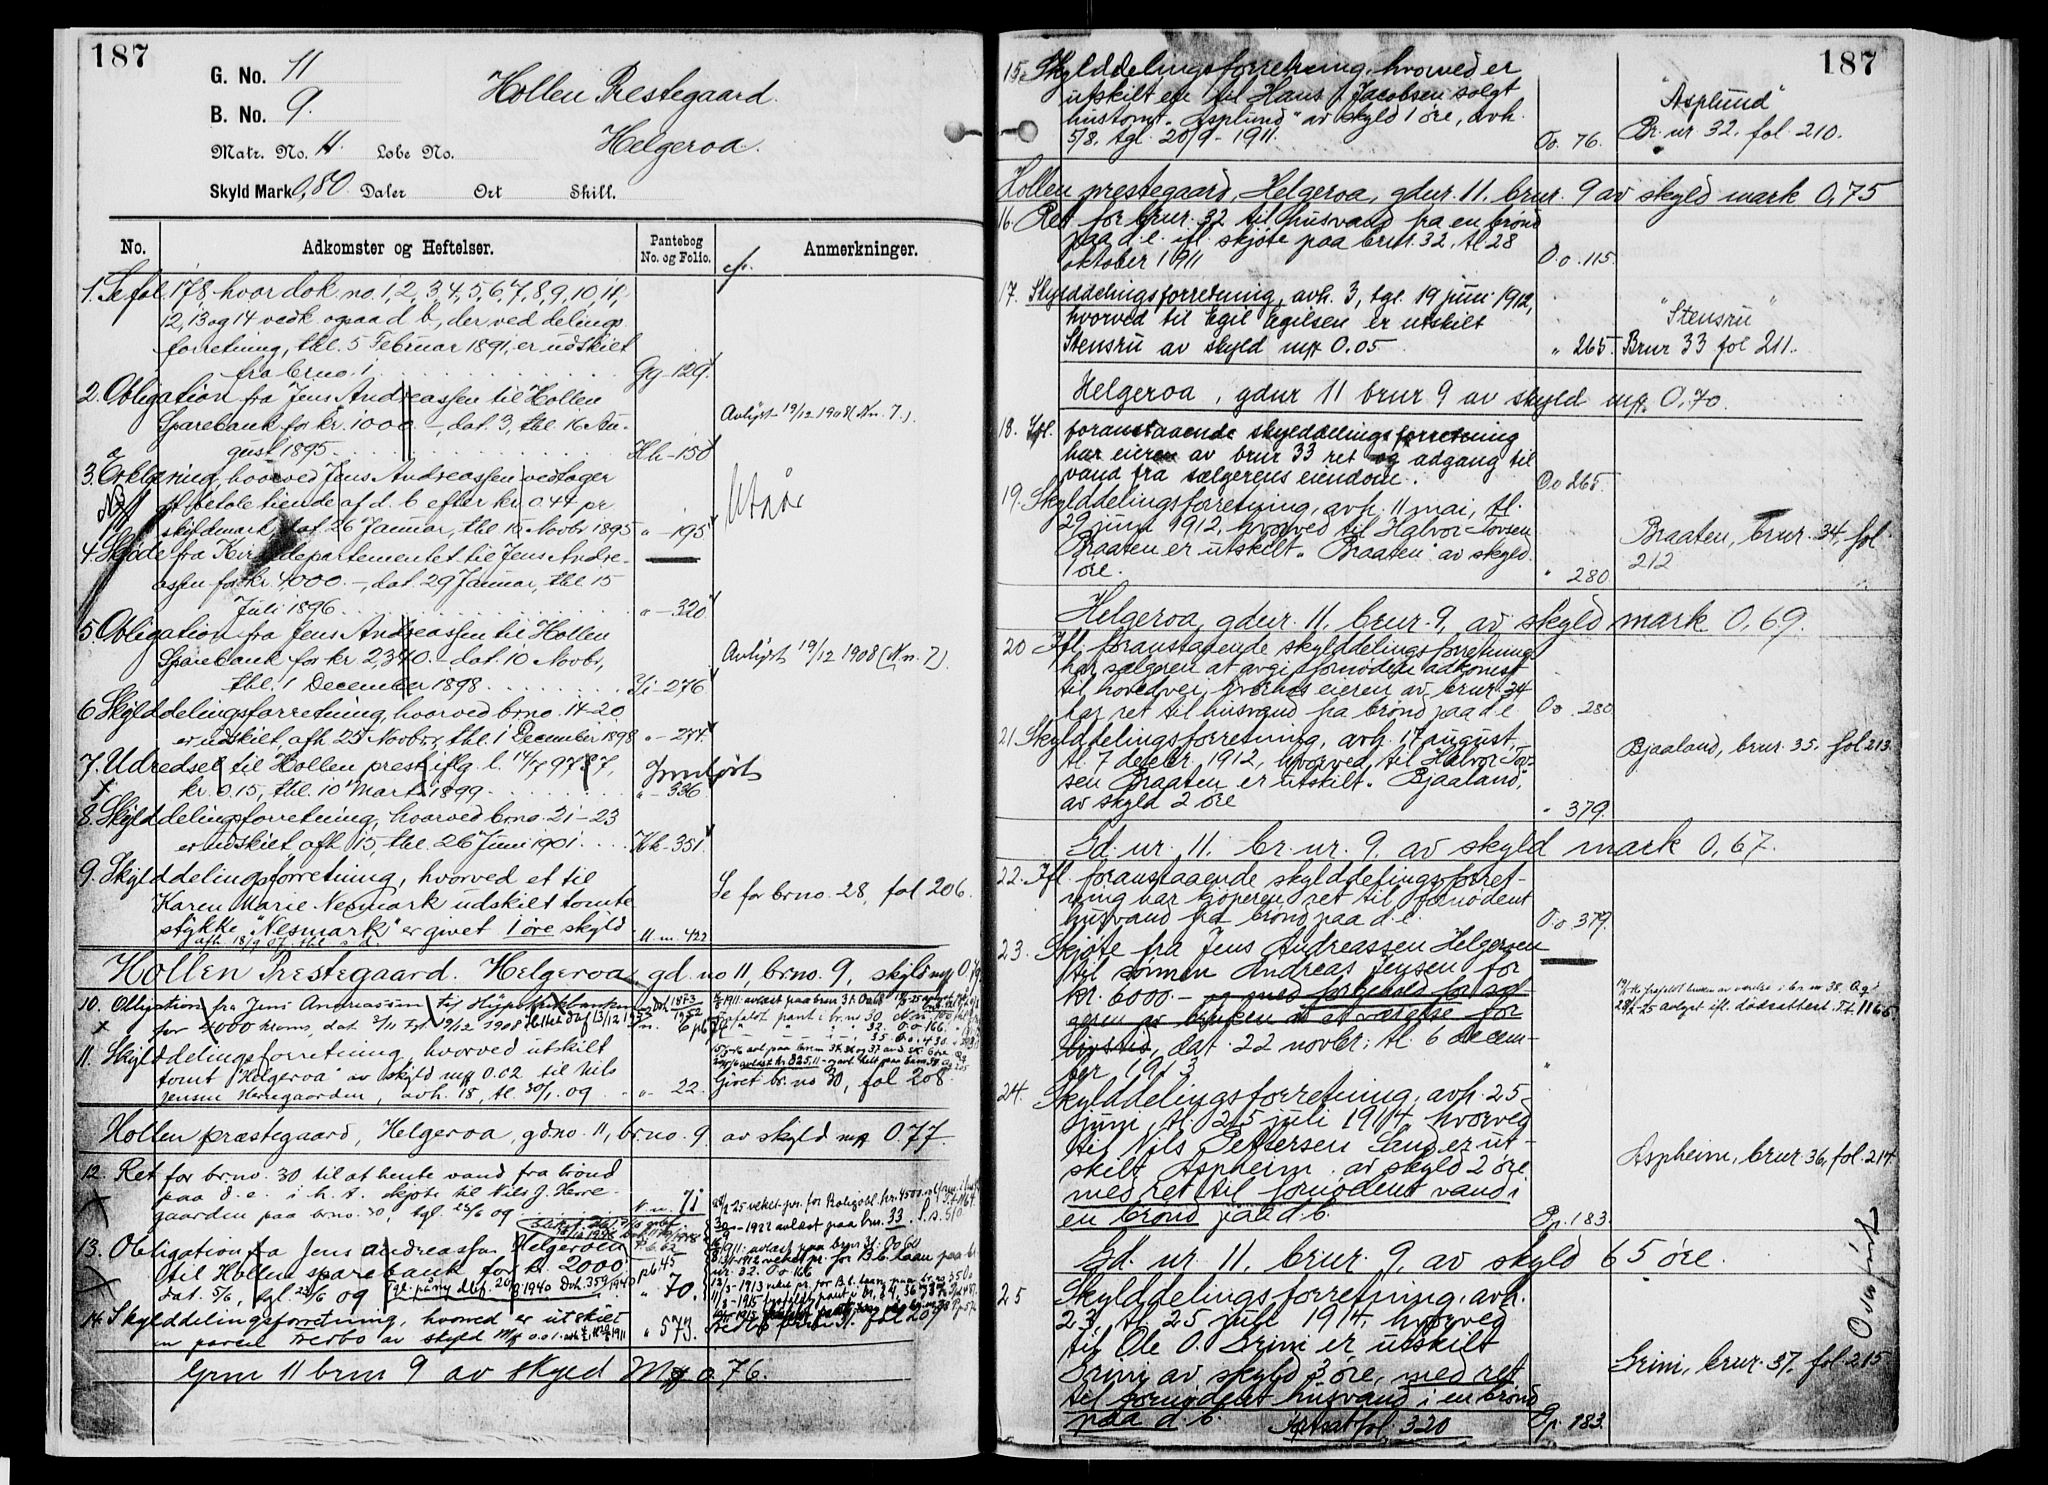 187
G. No. 11
B. No. 9.
Matr. No. 11. Løbe No.
Skyld Mark 0,80 Daler Ort Skill.
Hollen Prestegaard.
Helgeroa.
No. Adkomster og Heftelser. Pantebog No. og Folio. Anmerkninger.
1. Se fol. 178 hvor dok. no. 1, 2, 3, 4, 5, 6, 7, 8, 9, 10, 11,
12, 13 og 14 vedk. ogsaa d. b, der ved delings
forretning, thl. 5 Februar 1891, er udskilt
fra brno. 1 Gg-129.
2. Obligation fra Jens Andreassen til Hollen
Sparebank for kr. 1000.-, dat. 3, thl. 16 Au- Avlyst 19/12 1908 (Nn. 7.)
gust 1895 Hh-150
3. Erklæring, hvorved Jens Andreassen vedtager
at betale tiende af d. b efter kr. 0.44 pr
skyldmark, dat. 26 Januar, thl. 15 Novbr 1895 " -195
4. Skjøde fra Kirkedepartementet til Jens Andre-
assen for kr. 4000.-, dat. 29 Januar, thl. 15
Juli 1896 " -320
5. Obligation fra Jens Andreassen til Hollen
Sparebank for kr 2,340.- dat. 10 Novbr, Avlyst 19/12 1908 (Nn. 7).
thl. 1 December 1898 Ii-276
6 Skylddelingsforretning, hvorved brno. 14-20
er udskilt, afh. 25 Novbr, thl. 1 December 1898 " -277.
7. Udredsel til Hollen prest iflg. l. 14/7 97 § 7,
kr. 0.15, thl. 10 Marts 1899 " -336
8. Skylddelingsforretning, hvorved brno. 21-23
er udskilt afh. 15, thl. 26 Juni 1901 Kk-351.
9. Skylddelingsforretning, hvorved et til
Karen Marie Nesmark udskilt tomte Se for brno. 28, fol 206.
stykke "Nesmark" er givet 1 øre skyld
afh. 18/9 07. thl. s. d. M. m. 422
Hollen Prestegaard. Helgeroa gd. no 11, brno. 9, skyld mk 0,79
10. Obligation fra Jens Andreassen til Hypothekbanken
for 4000 kroner, dat. 3/11 tgl. 19/12 1908
11. Skylddelingsforretning, hvorved utskilt
tomt "Helgeroa" av skyld mk 0.02 til Nils
Jensen Herregaarden, avh. 18, tl. 30/1. 09 " 22. Givet br. no 30, fol 208
Hollen præstegaard, Helgeroa, gd.no. 11, br.no. 9 av skyld mk 0.77
12. Ret for br.no. 30 til at hente vand fra brønd
paa d. e. i h. t. skjøte til Nils J. Herre-
gaarden paa br.no. 30, tgl. 23/6 09 N. n. 71
13. Obligation fra Jens Andreassen Helgeroen
til Hollen sparebank for kr. 2000
dat. 5/6, tgl. 23/6 09 " 70.
14. Skylddelingsforretning, hvorved er utskilt
en parsel Tredbo av skyld Mk 0.01 " 573.
Grnr 11 brnr 9 av skyld Mk 0.76.
187
15. Skylddelingsforretning, hvorved er
utskilt en til Hans Jacobsen solgt "Asplund"
hustomt "Asplund" av skyld 1 øre, avh.
5/8, tgl. 20/9 - 1911. Oo. 76. Br. nr 32, fol. 210.
Hollen prestegaard, Helgeroa, gdnr. 11. brnr. 9 av skyld mark 0,75
16. Ret for brnr. 32 til husvand fra en brønd
paa d. e. ifl. skjøte paa brnr. 32, tl 28
oktober 1911 O.o. 115.
17. Skylddelingsforretning, avh. 3, tgl. 19 juni 1912,
hvorved til Egil Egilsen er utskilt "Stensru"
Stensru av skyld mk 0.05 " 265. Brnr 33 fol 211.
Helgeroa, gdnr 11 brnr 9 av skyld mk. 0,70.
18. Ifl. foranstaaende skylddelingsforretning
har eieren av brnr 33 ret og adgang til
vand fra sælgerens eiendom. Oo 265.
19. Skylddelingsforretning, avh. 11 mai, tl.
29 juni 1912, hvorved til Halvor Torsen Braaten, brnr. 34, fol
Braaten er utskilt "Braaten" av skyld 212
1 øre. " 280
Helgeroa, gdnr. 11. brnr. 9, av skyld mark 0,69.
20 Ifl. foranstaaende skylddelingsforretning
har sælgeren at avgi fornøden adkomst
til hovedvei, hvorhos eieren av brnr. 34
har ret til husvand fra brønd paa d. e. Oo. 280
21 Skylddelingsforretning, avh. 17 august
tl. 7 decbr. 1912, hvorved til Halvor Tor- Bjaaland, brnr. 35, fol 213.
sen Braaten er utskilt "Bjaaland",
av skyld 2 øre " 379.
Gd. nr. 11. br. nr. 9. av skyld mark 0,67.
22. Ifl. foranstaaende skylddelingsforret-
ning har kjøperen ret til fornødent
husvand fra brønd paa d. e. Oo 379.
23. Skjøte fra Jens Andreassen Helgeroen
til sønnen Andreas Jensen for
kr. 6000.- og med forbehold for sæl-
geren av bruken av et værelse for
livstid, dat. 22 novbr. tl. 6 decem-
ber 1913 "
24. Skylddelingsforretning, avh. 25
juni, tl. 25 juli 1914 hvorved
til Nils Pettersen Sand er ut-
skilt Aspheim av skyld 2 øre Aspheim, brnr. 36, fol. 214
med ret til fornødent vand i
en brønd paa d. b. Pp. 183.
Gd. nr. 11. brnr. 9, av skyld 65 øre.
25 Skylddelingsforretning, avh.
23, tl. 25 juli 1914, hvorved
til Ole O. Grini er utskilt
Grini av skyld 3 øre, med ret Grini, brnr. 37, fol. 215
til fornødent husvand i en brønd
paa d. b. Fortsat fol. 320 Pp. 183.
Overført